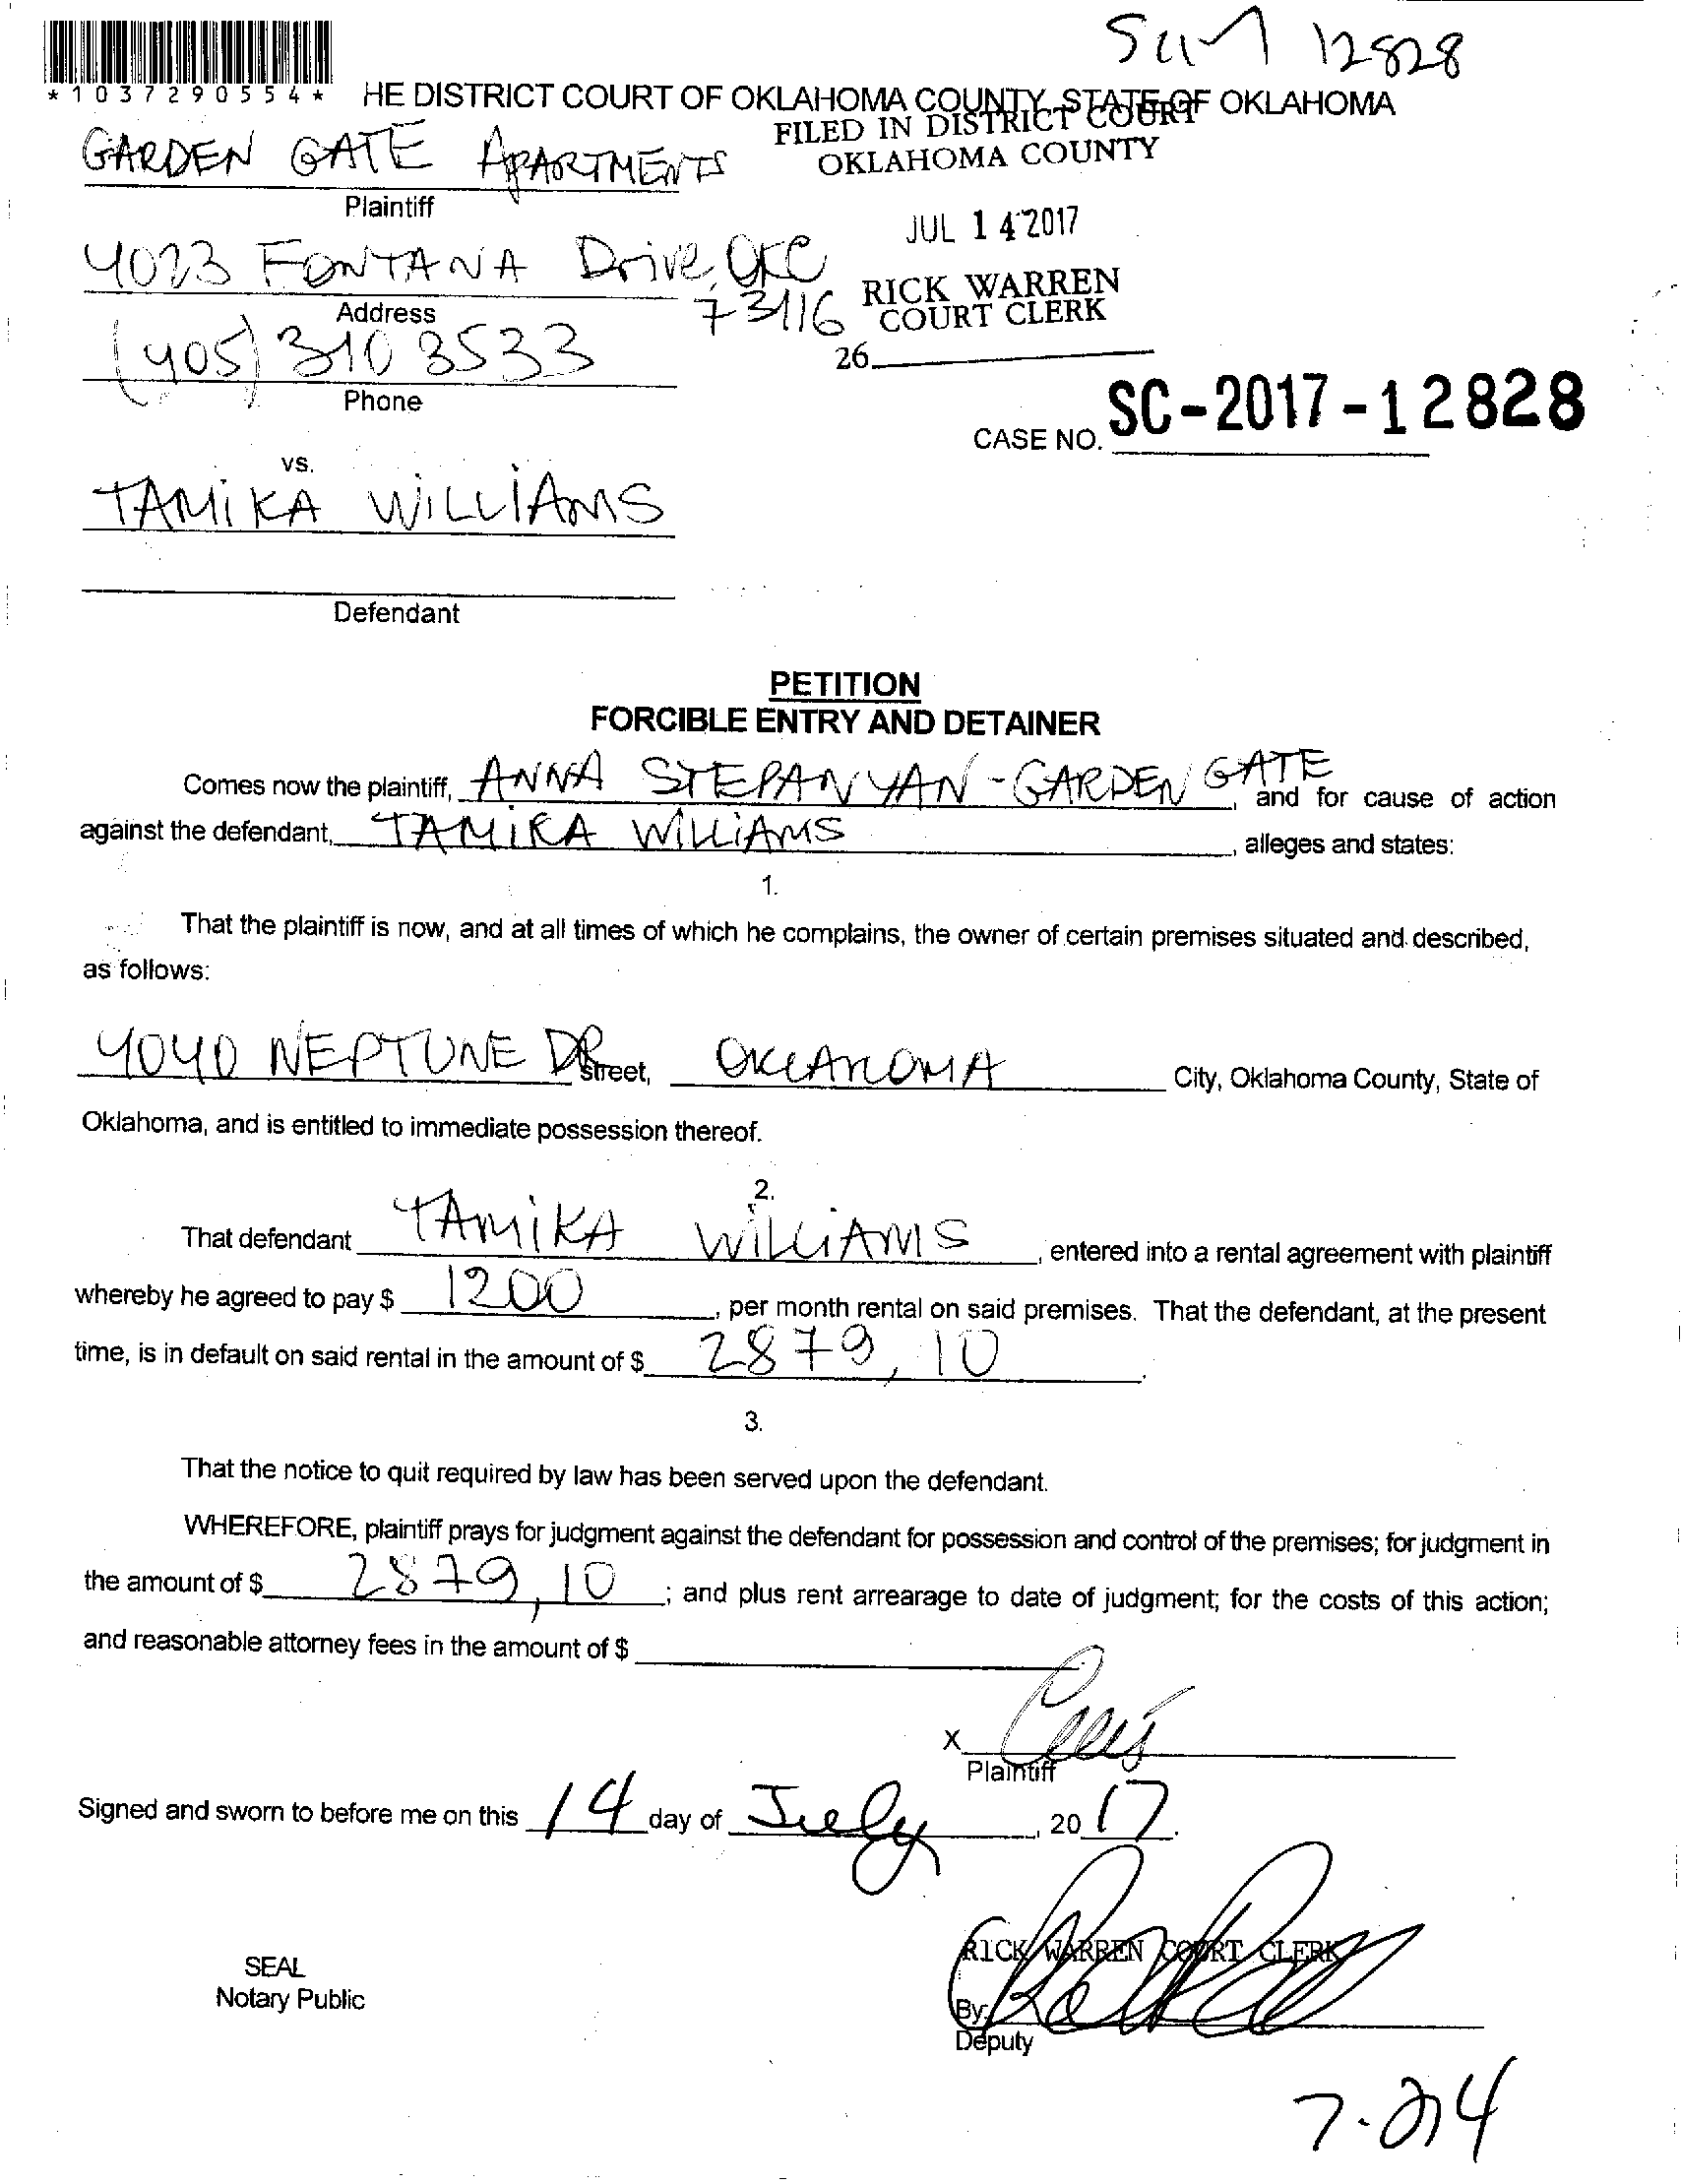 Sum 12828
*1037290554*
HE DISTRICT COURT OF OKLAHOMA COUNTY, STATE OF OKLAHOMA
FILED IN DISTRICT COURT
OKLAHOMA COUNTY
GARDEN GATE APARTMENTS
Plaintiff
JUL 14 2017
4023 FONTANA Drive, OKC
73116
Address
RICK WARREN
COURT CLERK
(405) 310 3533
26
Phone
CASE NO. SC-2017-12828
vs.
TAMiKA WiLLiAMS
Defendant
PETITION
FORCIBLE ENTRY AND DETAINER
Comes now the plaintiff, ANNA STEPANYAN - GARDEN GATE, and for cause of action
against the defendant, TAMiKA WiLLiAMS, alleges and states:
1.
That the plaintiff is now, and at all times of which he complains, the owner of certain premises situated and described,
as follows:
4040 NEPTUNE DR Street, OKLAHOMA City, Oklahoma County, State of
Oklahoma, and is entitled to immediate possession thereof.
2.
That defendant TAMiKA WiLLiAMS, entered into a rental agreement with plaintiff
whereby he agreed to pay $ 1200, per month rental on said premises. That the defendant, at the present
time, is in default on said rental in the amount of $ 2879,10.
3.
That the notice to quit required by law has been served upon the defendant.
WHEREFORE, plaintiff prays for judgment against the defendant for possession and control of the premises; for judgment in
the amount of $ 2879,10; and plus rent arrearage to date of judgment; for the costs of this action;
and reasonable attorney fees in the amount of $
X
Plaintiff
Signed and sworn to before me on this 14 day of July, 2017.
RICK WARREN COURT CLERK
SEAL
Notary Public
By:
Deputy